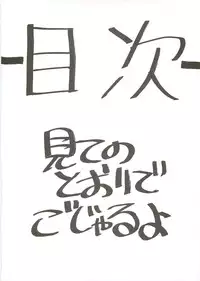 -目次-
見ての
とおりで
ごじゃるよ